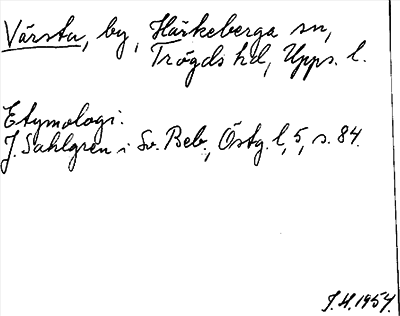 Värsta, by, Härkeberga sn,
Trögds hd, Upps. l.
Etymologi:
J. Sahlgren i Sv. Beb., Östg. l, 5, s. 84.
J.H. 1954.